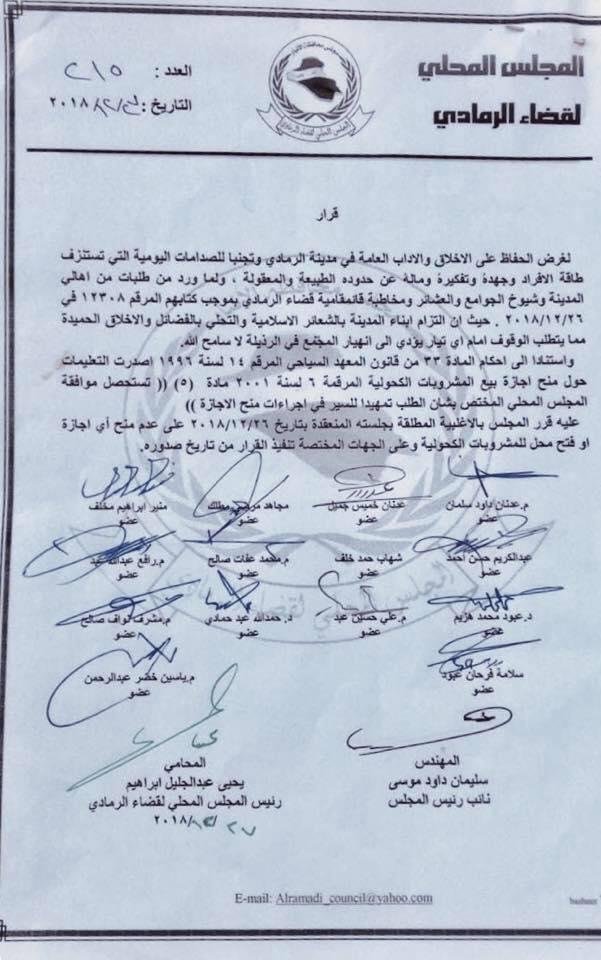 المجلس المحلي
لقضاء الرمادي
العدد : ٢١٥
التاريخ : ٢٠١٨/١٢/
المجلس المحلي لقضاء الرمادي
قرار
لغرض الحفاظ على الاخلاق والاداب العامة في مدينة الرمادي وتجنبا للصدامات اليومية التي تستنزف
طاقة الافراد وجهدة وتفكيرة ومالة عن حدوده الطبيعة والمعقولة ، ولما ورد من طلبات من اهالي
المدينة وشيوخ الجوامع والعشائر ومخاطبة قائمقامية قضاء الرمادي بموجب كتابهم المرقم ١٢٣٠٨ في
٢٠١٨/١٢/٢٦ . حيث إن التزام ابناء المدينة بالشعائر الاسلامية والتحلي بالفضائل والاخلاق الحميدة
مما يتطلب الوقوف امام أي تيار يؤدي الى انهيار المجتمع في الرذيلة لا سامح الله.
واستنادا الى احكام المادة ٣٣ من قانون المعهد السياحي المرقم ١٤ لسنة ١٩٩٦ اصدرت التعليمات
حول منح اجازة بيع المشروبات الكحولية المرقمة ٦ لسنة ٢٠٠١ مادة (٥) (( تستحصل موافقة
المجلس المحلي المختص بشان الطلب تمهيدا للسير في اجراءات منح الاجازة ))
عليه قرر المجلس بالاغلبية المطلقة بجلسته المنعقدة بتاريخ ٢٠١٨/١٢/٢٦ على عدم منح أي اجازة
او فتح محل للمشروبات الكحولية وعلى الجهات المختصة تنفيذ القرار من تاريخ صدوره.
م.عدنان داود سلمان عدنان خميس جميل مجاهد مرضي مطلك منير ابراهيم مخلف
عضو عضو عضو عضو
عبدالكريم حسن احمد شهاب حمد خلف م.محمد عفات صالح م.رافع عبدالله عبد
عضو عضو عضو عضو
د.عبود محمد هزيم م.علي حسين عبد د. حمدالله عبد حمادي م.مشرف نواف صالح
عضو عضو عضو عضو
سلامة فرحان عبود م.ياسين خضر عبدالرحمن
عضو عضو
المهندس المحامي
سليمان داود موسى يحيى عبدالجليل ابراهيم
نائب رئيس المجلس رئيس المجلس المحلي لقضاء الرمادي
٢٠١٨/١٢/٢٧
E-mail: Alramadi_council@yahoo.com